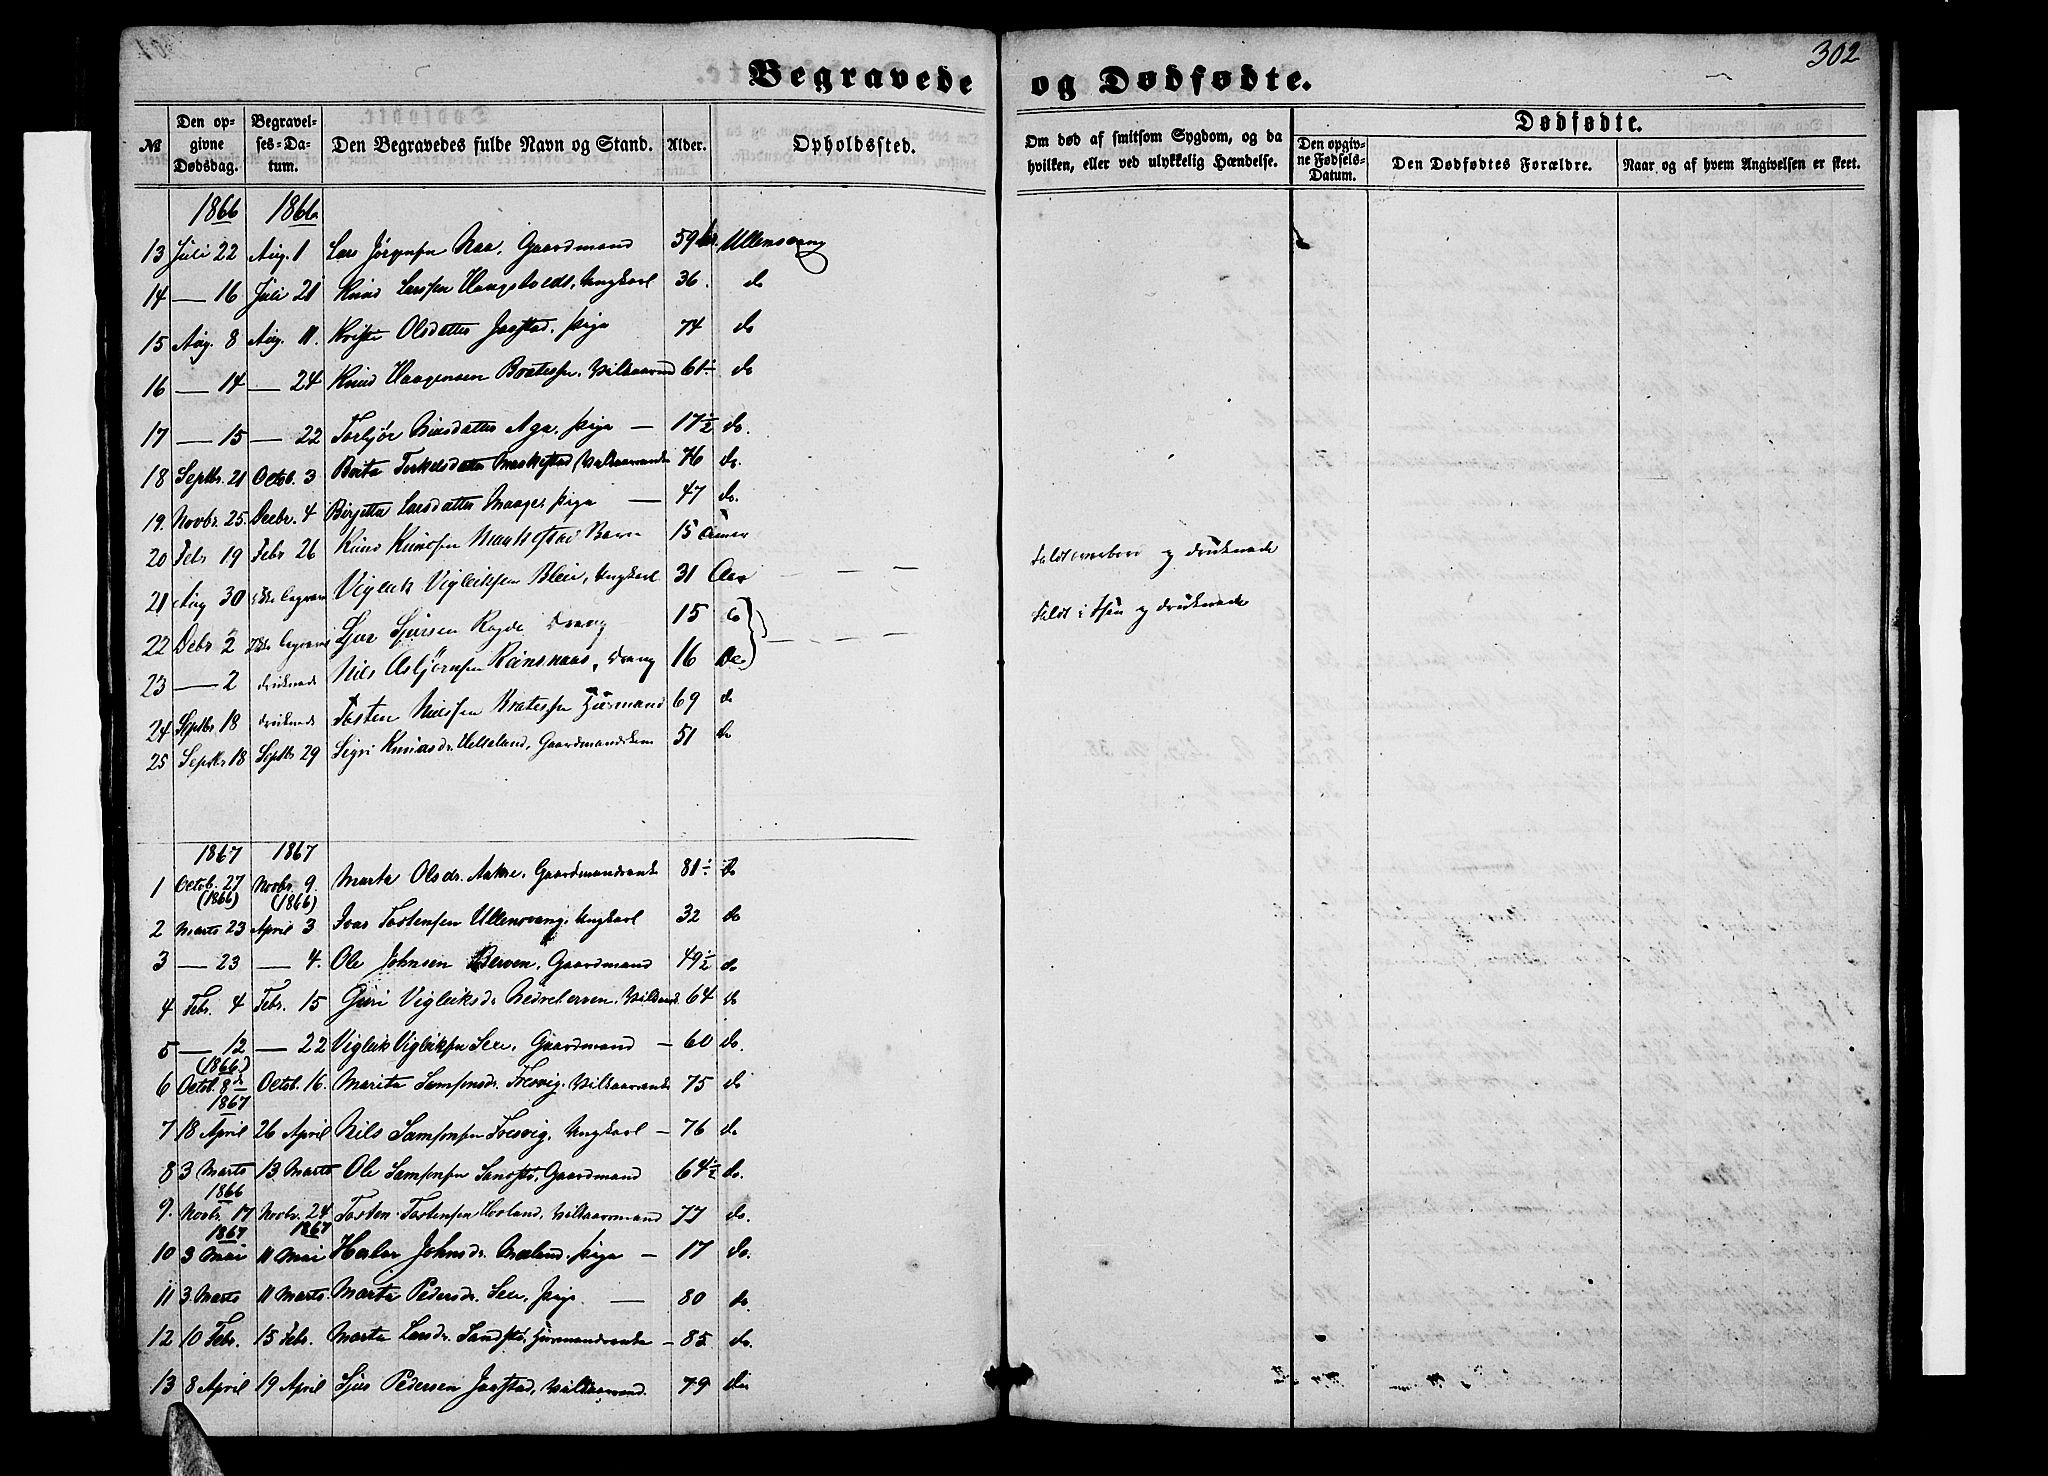 302
Begravede og Dødfødte.
№
Den opgivne Dødsdag.
Begravelses-Datum.
Den Begravedes fulde Navn og Stand.
Alder.
Opholdssted.
Om død af smitsom Sygdom, og da hvilken, eller ved ulykkelig Hændelse.
Dødfødte.
Den opgivne Fødsels-Datum.
Den Dødfødtes Forældre.
Naar og af hvem Angivelsen er skeet.
1866 1866
13 Juli 22 Aug. 1 Lars Jørgensen Naa, Gaardmand 59 Ullensvang
14 — 16 Juli 21 Knud Larssen Ungkarl 36. do
15 Aug. 8 Aug. 11. Olsdatter Jaastad, Pige 74 do
16 — 14 — 24 Knud Haagensen 61 do
17 — 15 — 22 Torbjør Aga, Pige — 17½ do.
18 Septbr. 21 Octob. 3 Brita Torkelsdatter 76 do.
19. Novbr. 25. Decbr. 4 Birgitta Larsdatter Maage, Pige — 47 do.
20 Febr 19 Febr 26 Knud Knudsen Barn 15
Faldt overbord og druknede
21 Aug 30 Ikke begravet Vigleik Vigleiksen Bleie, Ungkarl 31 — — —
Faldt i Søen og druknede
22 Debr 2 Ikke begravet Sjur Sjursen Ragde Dreng 15 do — — —
23 — 2 druknede Nils Asbjørnsen Reinsnaas, Dreng 16 Do
24 Septbr 18 druknede Tosten Nielsen 69 do
25 Septbr 18 Septbr 29 Sigri Knudsdr. Helleland, 51 do
1867 1867
1 Octob. 27 (1866) Novbr. 9. (1866) Marta Olsdr. Aakre, Gaardmandsenke 81 do
2 Marts 23 April 3 Ivar Tostensen Ullensvang, Ungkarl 32 do
3 — 23 — 4. Ole Johnsen Berven, Gaardmand 49½ do
4 Febr. 4 Febr. 15 Guri Vigleiksdr. 64 do
5 — 12 — 22 Vigleik Vigleiksen Sexe, Gaardmand — 60 do.
(1866)
6 Octob. 8de Octob. 16. Marita Samsonsdr. Fresvig, Vilkaarsenke 75 do
1867
7 18 April 26 April Nils Samsonsen Fresvig, Ungkarl — 76 do
8 3 Marts 13 Marts Ole Samsonsen Gaardmand 64½ do.
1866
9. Novbr. 17 Novbr. 24 Tosten Tostensen Hovland, Vilkaarsmand 77 do.
1867 1867
10 3 Mai 11 Mai Johnsdr. Pige — 17 do.
11 3 Marts 11 Marts. Marta Pedersdr. Sexe, Pige — 80 do
12 10 Febr. 15 Febr. Marta Larsdr. Huusmandsenke — 85 do.
13 8 April 19 April Sjur Pedersen Jaastad, Vilkaarsmand 79 do